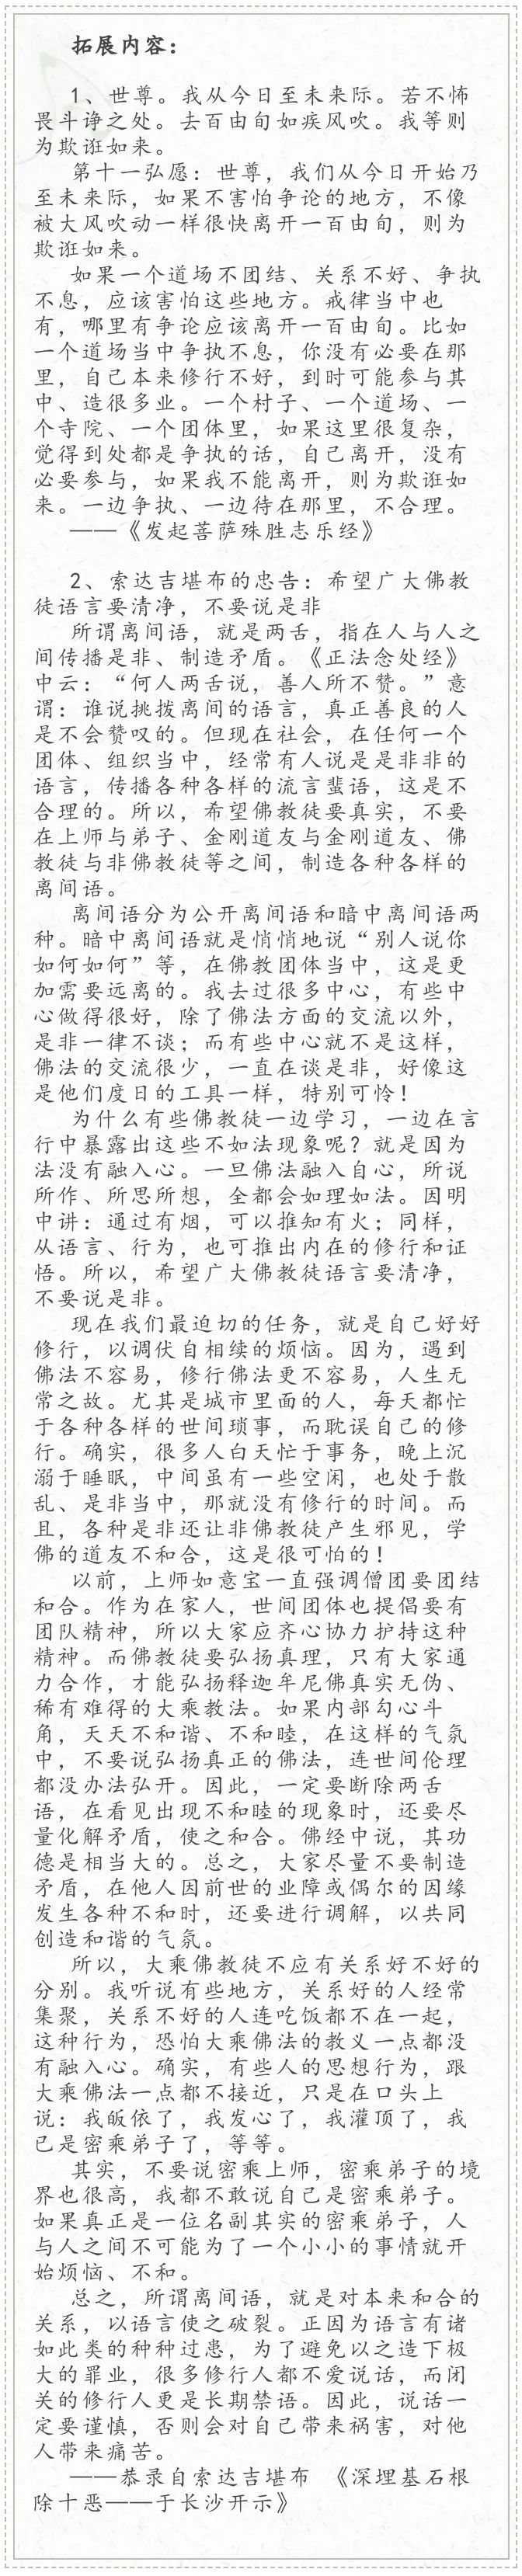 拓展内容：
1、世尊。我从今日至未来际。若不怖
畏斗诤之处。去百由旬如疾风吹。我等则
为欺诳如来。
第十一弘愿：世尊，我们从今日开始乃
至未来际，如果不害怕争论的地方，不像
被大风吹动一样很快离开一百由旬，则为
欺诳如来。
如果一个道场不团结、关系不好、争执
不息，应该害怕这些地方。戒律当中也
有，哪里有争论应该离开一百由旬。比如
一个道场当中争执不息，你没有必要在那
里，自己本来修行不好，到时可能参与其
中、造很多业。一个村子、一个道场、一
个寺院、一个团体里，如果这里很复杂，
觉得到处都是争执的话，自己离开，没有
必要参与，如果我不能离开，则为欺诳如
来。一边争执、一边待在那里，不合理。
——《发起菩萨殊胜志乐经》
2、索达吉堪布的忠告：希望广大佛教
徒语言要清净，不要说是非
所谓离间语，就是两舌，指在人与人之
间传播是非、制造矛盾。《正法念处经》
中云：“何人两舌说，善人所不赞。”意
谓：谁说挑拨离间的语言，真正善良的人
是不会赞叹的。但现在社会，在任何一个
团体、组织当中，经常有人说是是非非的
语言，传播各种各样的流言蜚语，这是不
合理的。所以，希望佛教徒要真实，不要
在上师与弟子、金刚道友与金刚道友、佛
教徒与非佛教徒等之间，制造各种各样的
离间语。
离间语分为公开离间语和暗中离间语两
种。暗中离间语就是悄悄地说“别人说你
如何如何”等，在佛教团体当中，这是更
加需要远离的。我去过很多中心，有些中
心做得很好，除了佛法方面的交流以外，
是非一律不谈；而有些中心就不是这样，
佛法的交流很少，一直在谈是非，好像这
是他们度日的工具一样，特别可怜！
为什么有些佛教徒一边学习，一边在言
行中暴露出这些不如法现象呢？就是因为
法没有融入心。一旦佛法融入自心，所说
所作、所思所想，全都会如理如法。因明
中讲：通过有烟，可以推知有火；同样，
从语言、行为，也可推出内在的修行和证
悟。所以，希望广大佛教徒语言要清净，
不要说是非。
现在我们最迫切的任务，就是自己好好
修行，以调伏自相续的烦恼。因为，遇到
佛法不容易，修行佛法更不容易，人生无
常之故。尤其是城市里面的人，每天都忙
于各种各样的世间琐事，而耽误自己的修
行。确实，很多人白天忙于事务，晚上沉
溺于睡眠，中间虽有一些空闲，也处于散
乱、是非当中，那就没有修行的时间。而
且，各种是非还让非佛教徒产生邪见，学
佛的道友不和合，这是很可怕的！
以前，上师如意宝一直强调僧团要团结
和合。作为在家人，世间团体也提倡要有
团队精神，所以大家应齐心协力护持这种
精神。而佛教徒要弘扬真理，只有大家通
力合作，才能弘扬释迦牟尼佛真实无伪、
稀有难得的大乘教法。如果内部勾心斗
角，天天不和谐、不和睦，在这样的气氛
中，不要说弘扬真正的佛法，连世间伦理
都没办法弘开。因此，一定要断除两舌
语，在看见出现不和睦的现象时，还要尽
量化解矛盾，使之和合。佛经中说，其功
德是相当大的。总之，大家尽量不要制造
矛盾，在他人因前世的业障或偶尔的因缘
发生各种不和时，还要进行调解，以共同
创造和谐的气氛。
所以，大乘佛教徒不应有关系好不好的
分别。我听说有些地方，关系好的人经常
集聚，关系不好的人连吃饭都不在一起，
这种行为，恐怕大乘佛法的教义一点都没
有融入心。确实，有些人的思想行为，跟
大乘佛法一点都不接近，只是在口头上
说：我皈依了，我发心了，我灌顶了，我
已是密乘弟子了，等等。
其实，不要说密乘上师，密乘弟子的境
界也很高，我都不敢说自己是密乘弟子。
如果真正是一位名副其实的密乘弟子，人
与人之间不可能为了一个小小的事情就开
始烦恼、不和。
总之，所谓离间语，就是对本来和合的
关系，以语言使之破裂。正因为语言有诸
如此类的种种过患，为了避免以之造下极
大的罪业，很多修行人都不爱说话，而闭
关的修行人更是长期禁语。因此，说话一
定要谨慎，否则会对自己带来祸害，对他
人带来痛苦。
——恭录自索达吉堪布 《深埋基石根
除十恶——于长沙开示》